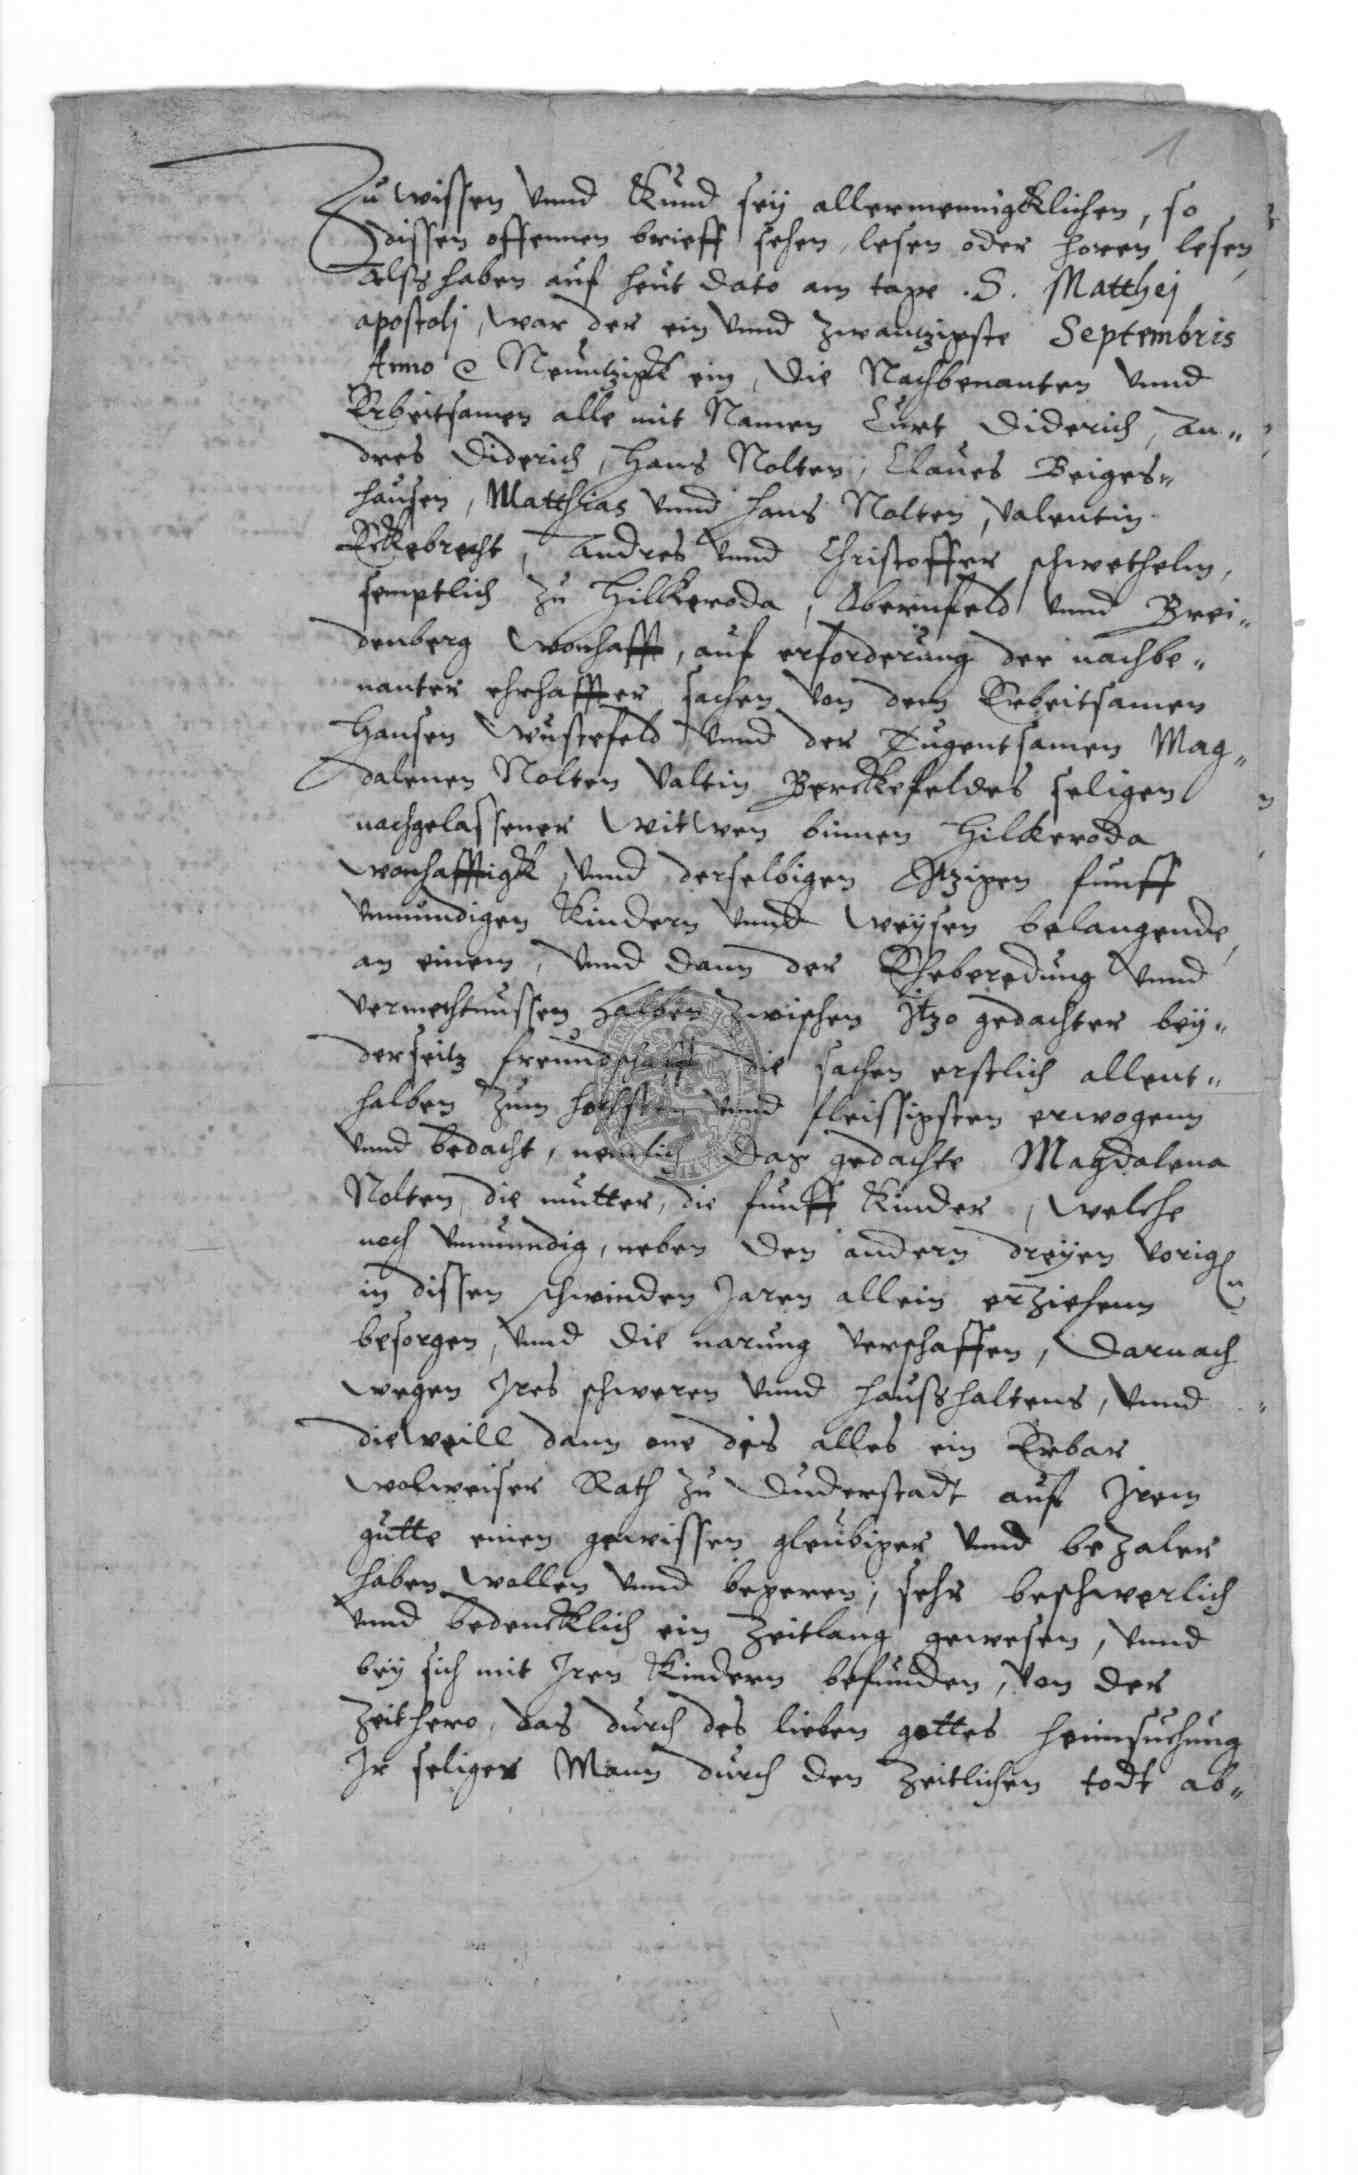 1
Zu wissen vnnd Kund seÿ allermennigklichen, so
dissen offennen brieff sehen, lesen oder horen lesen,
Alss haben auf heut dato am tage .S. Matthej
apostolj, war der ein vnnd zwantzigste Septembris
Anno Neuntzigk ein, die Nachbenanten vnnd
Erbeitsamen alle mit Namen Curt Diderich, An„
dres Diderich, Hans Nolten, Claues Beiges„
hausen, Matthias vnnd Hans Nolten, Valentin
Eckebrecht, Andres vnnd Christoffer schwethelm,
semptlich zu Hilkeroda, Obernfeld vnnd Brei„
denberg wonhafft, auf erforderung der nachbe„
nanter ehehaffter sachen von dem Erbeitsamen
Hansen Wustefeld vnnd der Tugentsamen Mag„
dalenen Nolten Valtin Berckefeldes seligen
nachgelassener Witwen binnen Hilkeroda
wonhafftigk, vnnd derselbigen Itzigen funff
vnmundigen Kindern vnnd Weÿsen belangende,
an einem, vnnd dann der Eheberedung vnnd
vermechtnussen halben zwischen Itzo gedachter beÿ„
derseitz freundschafft die sachen erstlich allent„
halben zum hochsten vnnd fleissigsten erwogenn
vnnd bedacht, nemlich das gedachte Magdalena
Nolten, die mutter, die funff Kinder, welche
noch vnmundig, neben den andern dreÿen vorigen
in dissen schwinden Jaren allein erziehenn
besorgen, vnnd die narung verschaffen, Darnach
wegen Ires schweren vnnd haussshaltens, vnnd
dieweill dann one dis alles ein Erbar
wolweiser Rath zu Duderstadt auf Irem
gutte einen gewissen gleubiger vnnd bezaler
haben wollen vnnd begeren, sehr beschwerlich
vnnd bedencklich ein zeitlang gewesen, vnnd
beÿ sich mit Iren Kindern befunden, von der
Zeit hero, das durch des lieben gottes heimsuchung
Ir seliger Mann durch den zeitlichen todt ab„